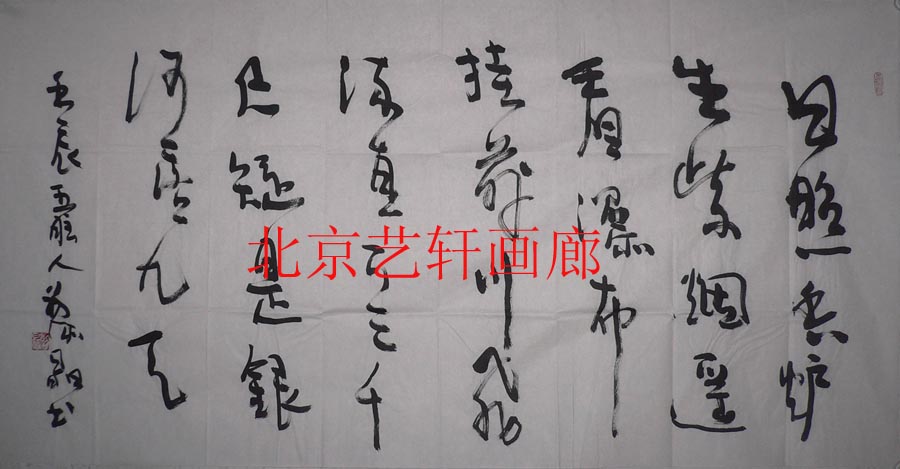 日照香炉
生紫烟遥
看瀑布
挂前川飛
流直下三千
尺疑是銀
河落九天
壬辰五人书
北京艺轩画廊